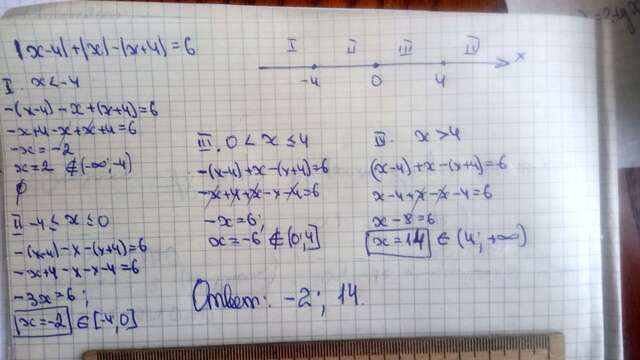 |x-4|+|x|-|x+4|=6
I II III IV
-4 0 4 x
I. x<-4
-(x-4)-x+(x+4)=6
-x+4-x+x+4=6
-x=-2
x=2 ∉(-∞;-4)
∅
II -4≤x≤0
-(x-4)-x-(x+4)=6
-x+4-x-x-4=6
-3x=6;
x=-2 ∈[-4;0]
III. 0<x≤4
-(x-4)+x-(x+4)=6
-x+4+x-x-4=6
-x=6;
x=-6 ∉(0;4]
IV. x>4
(x-4)+x-(x+4)=6
x-4+x-x-4=6
x-8=6
x=14 ∈ (4; +∞)
Ответ: -2; 14.